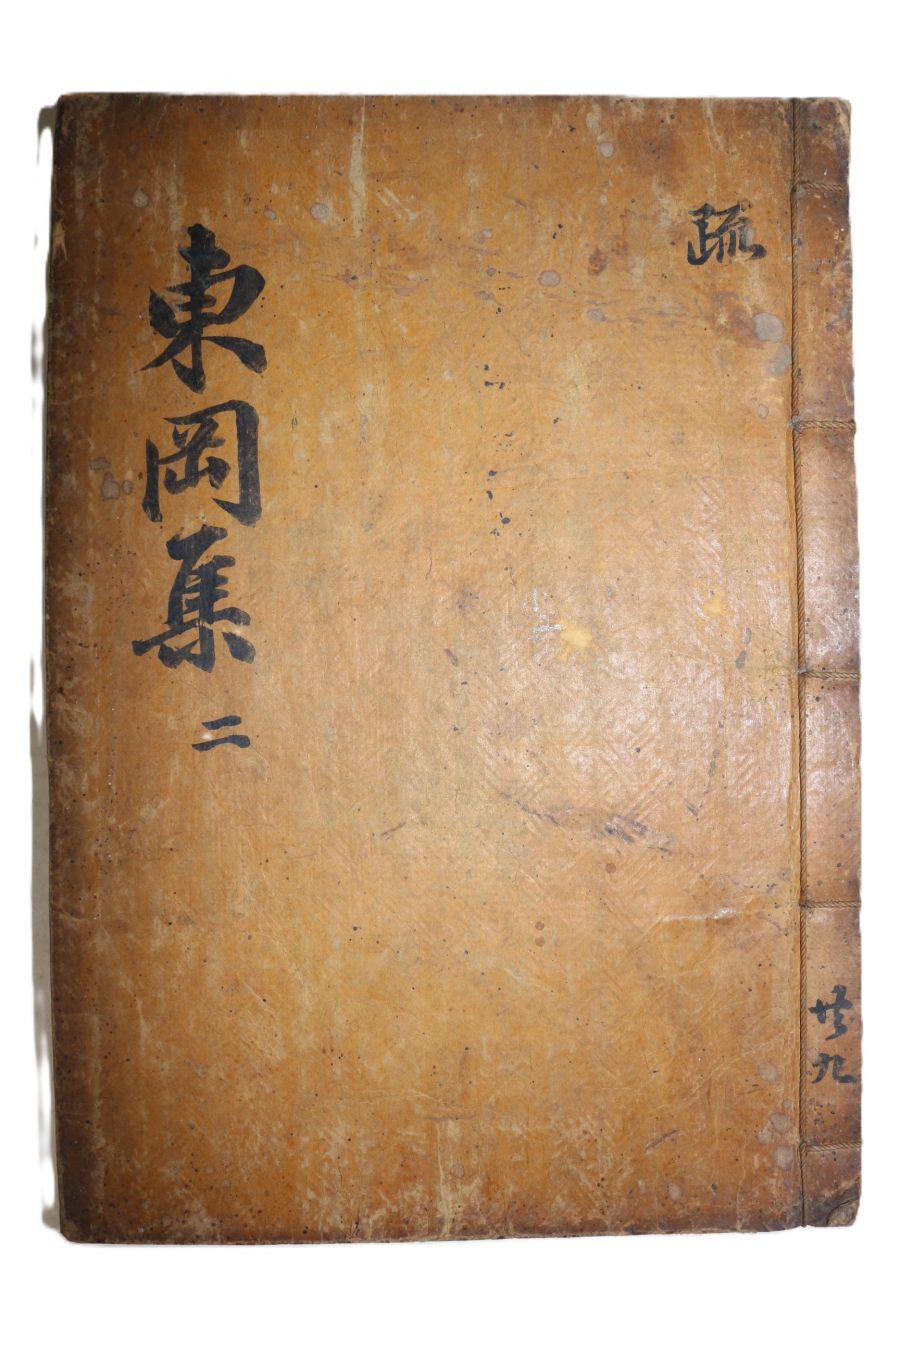 疏
東岡集 二
共九